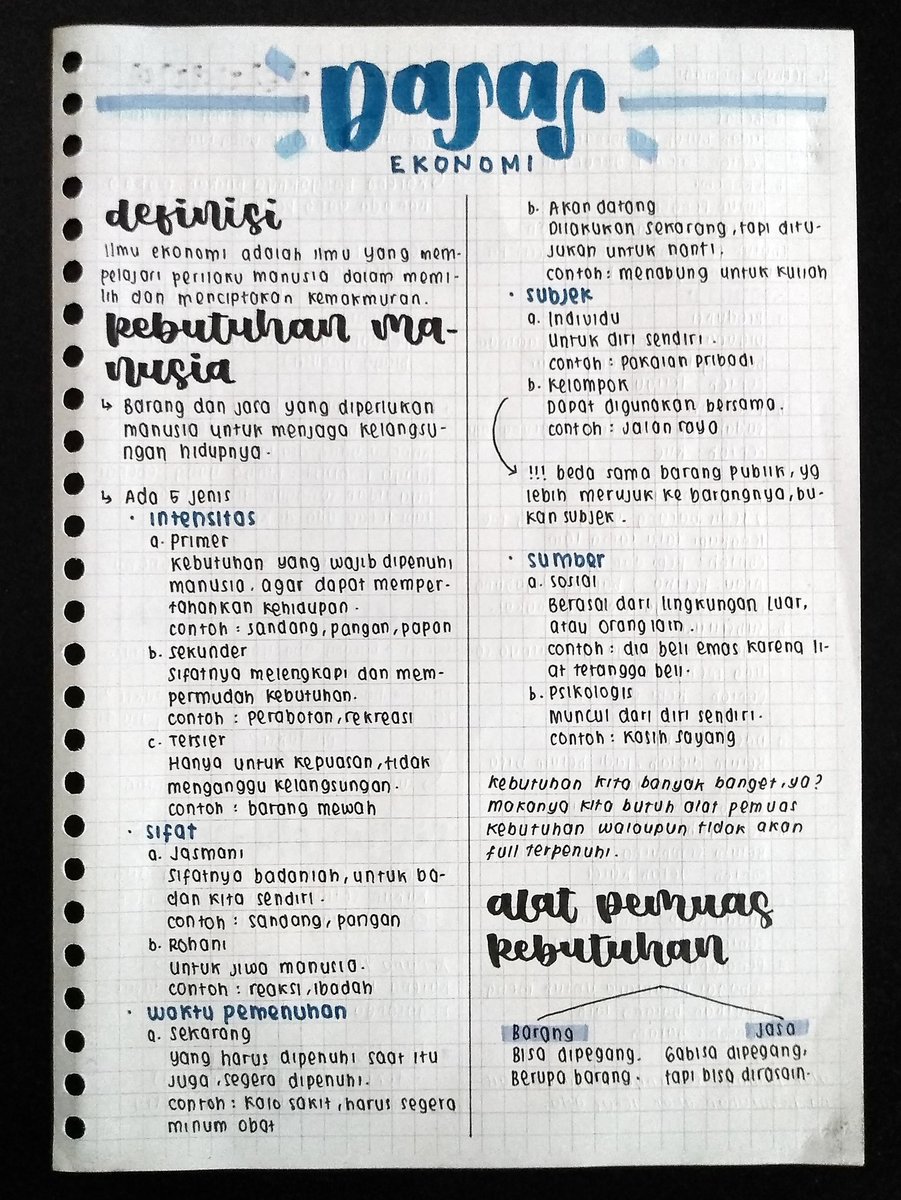 Dasar
EKONOMI
definisi
Ilmu ekonomi adalah ilmu yang mem-
pelajari perilaku manusia dalam memi-
lih dan menciptakan kemakmuran.
kebutuhan ma-
nusia
↳ Barang dan jasa yang diperlukan
manusia untuk menjaga kelangsu-
ngan hidupnya.
↳ Ada 5 jenis
• intensitas
a. Primer
Kebutuhan yang wajib dipenuhi
manusia, agar dapat memper-
tahankan kehidupan.
contoh : sandang, pangan, papan
b. sekunder
Sifatnya melengkapi dan mem-
permudah kebutuhan.
contoh : perabotan, rekreasi
c. Tersier
Hanya untuk kepuasan, tidak
menganggu kelangsungan.
contoh : barang mewah
• sifat
a. Jasmani
Sifatnya badaniah, untuk ba-
dan kita sendiri.
contoh : sandang, pangan
b. Rohani
Untuk jiwa manusia.
contoh : reaksi, ibadah
• waktu pemenuhan
a. sekarang
yang harus dipenuhi saat itu
juga, segera dipenuhi.
contoh : kalo sakit, harus segera
minum obat
b. Akan datang
Dilakukan sekarang, tapi ditu-
jukan untuk nanti.
contoh : menabung untuk kuliah
• subjek
a. Individu
Untuk diri sendiri.
contoh : pakaian pribadi
b. Kelompok
Dapat digunakan bersama.
contoh : jalan raya
!!! beda sama barang publik, yg
lebih merujuk ke barangnya, bu-
kan subjek.
• sumber
a. sosial
Berasal dari lingkungan luar,
atau orang lain.
contoh : dia beli emas karena li-
at tetangga beli.
b. Psikologis
Muncul dari diri sendiri.
contoh : kasih sayang
kebutuhan kita banyak banget, ya?
makanya kita butuh alat pemuas
kebutuhan walaupun tidak akan
full terpenuhi.
alat pemuas
kebutuhan
Barang
Bisa dipegang.
Berupa barang.
Jasa
Gabisa dipegang,
tapi bisa dirasain.